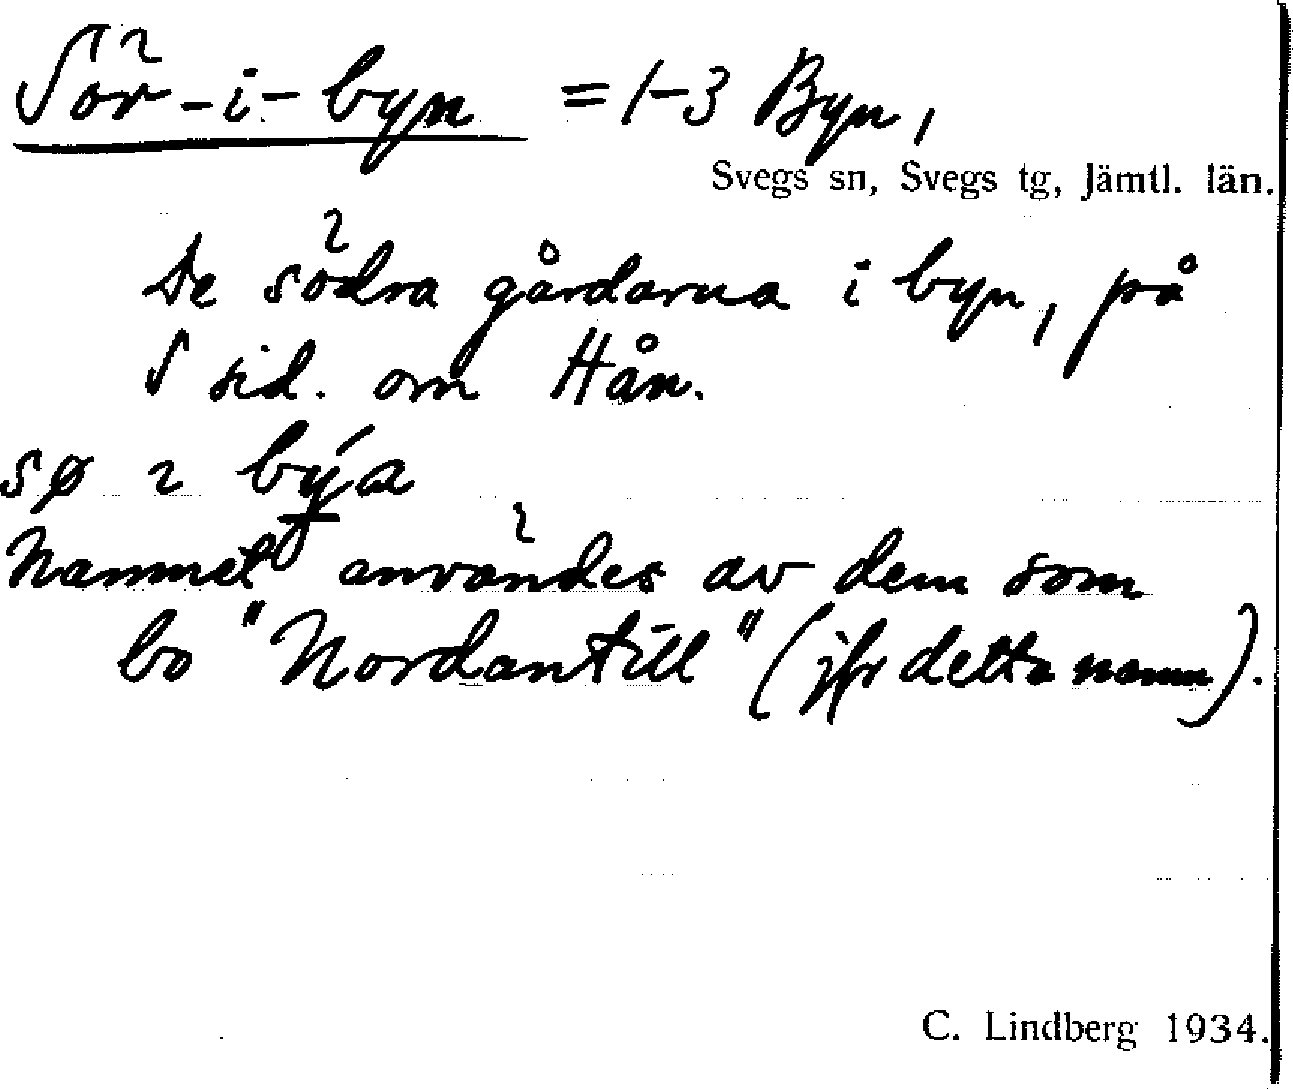 Sör-i-byn = 1-3 Byn,
Svegs sn, Svegs tg, Jämtl. län.
De södra gårdarna i byn, på
S sid. om Hån.
sø ı býa
Namnet användes av dem som
bo "Nordantill" (jfr detta namn).
C. Lindberg 1934.